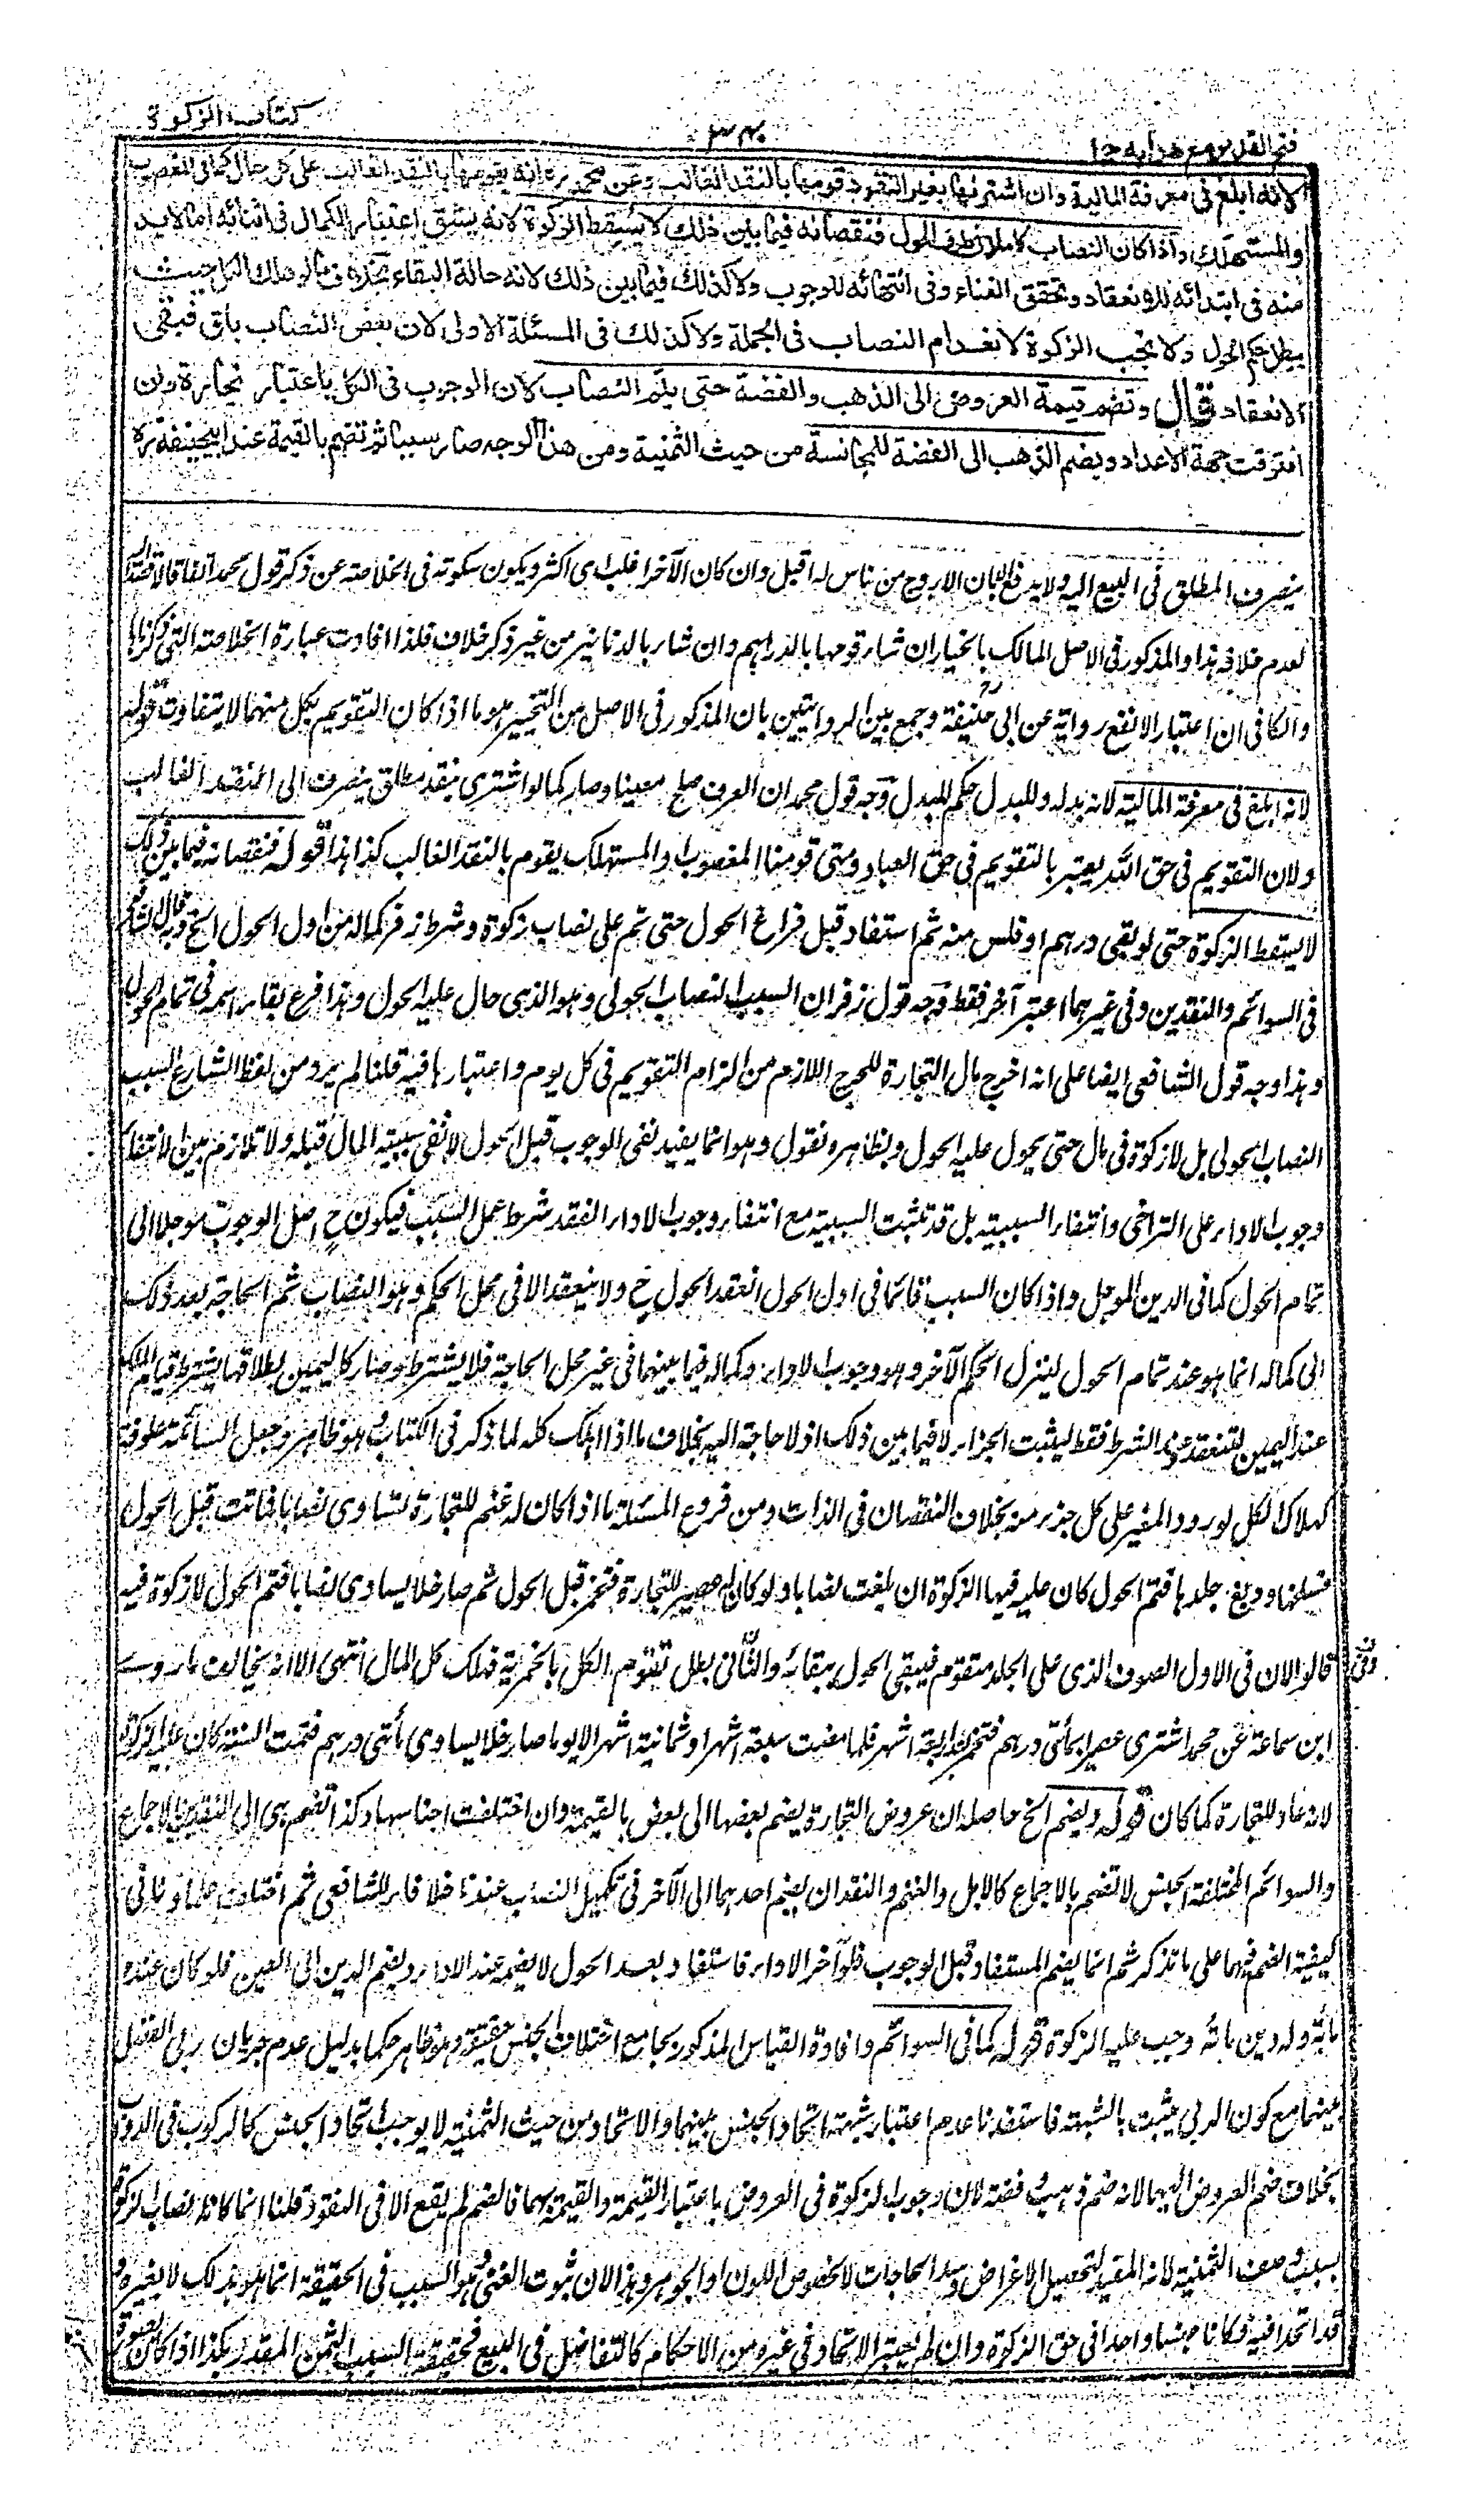 فتح القدير مع هداية ج ا
كتاب الزكوة
لانه ابلغ فى معرفة المالية وان اشتراها بغير النقود قومها بالنقد الغالب وعن محمد رح انه يقومها بالنقد الغالب على كل حال كما فى المغصوب
والمستهلك واذا كان النصاب كاملا فى طرفى الحول فنقصانه فيما بين ذلك لا يسقط الزكوة لانه يشق اعتبار الكمال فى اثنائه اما لابد
منه فى ابتدائه للانعقاد وتحقق الغناء وفى انتهائه للوجوب ولا كذلك فيما بين ذلك لانه حالة البقاء بخلاف ما لو هلك الكل حيث
يبطل حكم الحول ولا يجب الزكوة لانعدام النصاب فى الجملة ولا كذلك فى المسئلة الاولى لان بعض النصاب باق فيبقى
الانعقاد قال وتضم قيمة العروض الى الذهب والفضة حتى يتم النصاب لان الوجوب فى الكل باعتبار التجارة وان
افترقت جهة الاعداد ويضم الذهب الى الفضة للمجانسة من حيث الثمنية ومن هذا الوجه صار سببا ثم تضم بالقيمة عند ابيحنيفة ره
ينصرف المطلق فى البيع اليه ولا يدفع الا بان الاروج من ناس له اقبل وان كان الآخر اغلب اى اكثر ويكون سكوته فى الخلاصة عن ذكر قول محمد اتفاقا لا قصدا اليه
لعدم خلافه هذا والمذكور فى الاصل المالك بالخيار ان شاء قومها بالدراهم وان شاء بالدنانير من غير ذكر خلاف فلذا افادت عبارة الخلاصة التى ذكرناها
والكافى ان اعتبار الانفع رواية عن ابى حنيفة رح وجمع بين الروايتين بان المذكور فى الاصل من التخيير هو ما اذا كان التقويم بكل منهما لا يتفاوت قوله
لانه ابلغ فى معرفة المالية لانه بدله وللبدل حكم المبدل وجه قول محمد ان العرف صلح معينا وصار كما لو اشترى بنقد مطلق ينصرف الى النقد الغالب
ولان التقويم فى حق الله يعتبر بالتقويم فى حق العباد ومتى قومنا المغصوب او المستهلك يقوم بالنقد الغالب كذا هذا قوله فنقصانه فيما بين ذلك
لا يسقط الزكوة حتى لو بقى درهم او فلس منه ثم استفاد قبل فراغ الحول حتى تم على نصاب زكوة وشرط زفر كماله من اول الحول الخ وبه قال الشافعى
فى السوائم والنقدين وفى غيرهما اعتبر آخره فقط وجه قول زفر ان السبب النصاب الحولى وهو الذى حال عليه الحول وهذا فرع بقاء اسمه فى تمام الحول
وهذا وجه قول الشافعى ايضا على انه اخرج مال التجارة للحرج اللازم من الزام التقويم فى كل يوم واعتبارها فيه قلنا لم يرد من لفظ الشارع السبب
النصاب الحولى بل لا زكوة فى مال حتى يحول عليه الحول وبظاهره نقول وهو انما يفيد نفى الوجوب قبل الحول لا نفى سببية المال قبله ولا تلازم بين انتفاء
وجوب الاداء على التراخى وانتفاء السببية بل قد تثبت السببية مع انتفاء وجوب الاداء لفقد شرط عمل السبب فيكون ح اصل الوجوب مؤجلا الى
تمام الحول كما فى الدين المؤجل واذا كان السبب قائما فى اول الحول انعقد الحول ح ولا ينعقد الا فى محل الحكم وهو النصاب ثم الحاجة بعد ذلك
الى كماله انما هو عند تمام الحول لينزل الحكم الآخر وهو وجوب الاداء وكماله فيما بينهما فى غير محل الحاجة فلا يشترط وصار كاليمين بطلاقها يشترط قيام الملك
عند اليمين لتنعقد وعند الشرط فقط ليثبت الجزاء لا فيما بين ذلك اذ لا حاجة اليه بخلاف ما اذا اهلك كله لما ذكر فى الكتاب وهو ظاهر وجعل السائمة علوفة
كهلاك الكل لورود المغير على كل جزء منه بخلاف النقصان فى الذات ومن فروع المسئلة ما اذا كان له غنم للتجارة تساوى نصابا فماتت قبل الحول
فسلخها ودبغ جلدها فتم الحول كان عليه فيها الزكوة ان بلغت نصابا ولو كان له عصير للتجارة فتخمر قبل الحول ثم صار خلا يساوى نصابا فتم الحول لا زكوة فيه
قالوا لان فى الاول الصوف الذى على الجلد متقوم فيبقى الحول ببقائه والثانى بطل تقوم الكل بالخمرية فهلك كل المال انتهى الا انه يخالف ما روى
ابن سماعة عن محمد اشترى عصيرا بمأتى درهم فتخمر بعد اربعة اشهر فلما مضت سبعة اشهر او ثمانية اشهر الا يوما صار خلا يساوى مأتى درهم فتمت السنة كان عليه الزكوة
لانه عاد للتجارة كما كان قوله ويضم الخ حاصله ان عروض التجارة يضم بعضها الى بعض بالقيمة وان اختلفت اجناسها وكذا تضم هى الى النقدين بالاجماع
والسوائم المختلفة الجنس لا تضم بالاجماع كالابل والغنم والنقدان يضم احدهما الى الآخر فى تكميل النصاب عندنا خلافا للشافعى ثم اختلف علماؤنا فى
كيفية الضم فيهما على ما نذكر ثم انما يضم المستفاد قبل الوجوب فلو اخر الاداء فاستفاد بعد الحول لا يضمه عند الاداء ويضم الدين الى العين فلو كان عنده
مائة وله دين مائة وجب عليه الزكوة قوله كما فى السوائم وافادة القياس المذكور بجامع اختلاف الجنس حقيقة وهو ظاهر وحكما بدليل عدم جريان ربى الفضل
بينهما مع كون الربى يثبت بالشبهة فاستفدنا عدم اعتبار شبهة اتحاد الجنس بينهما والاتحاد من حيث الثمنية لا يوجب اتحاد الجنس كالركوب فى الدواب
بخلاف ضم العروض اليهما لانه ضم ذهب وفضة لان وجوب الزكوة فى العروض باعتبار القيمة والقيمة هما فالضم لم يقع الا فى النقود قلنا انما كانا نصاب الزكوة
بسبب وصف الثمنية لانه المفيد لتحصيل الاغراض وسد الحاجات لا لخصوص اللون او الجوهر وهذا لان ثبوت الغنى وهو السبب فى الحقيقة انما هو بذلك لا بغيره و
قد اتحدا فيه فكانا جنسا واحدا فى حق الزكوة وان لم يعتبر الاتحاد فى غيره من الاحكام كالتفاضل فى البيع فحقيقة السبب الثمن المقدر بكذا اذا كان بصورة